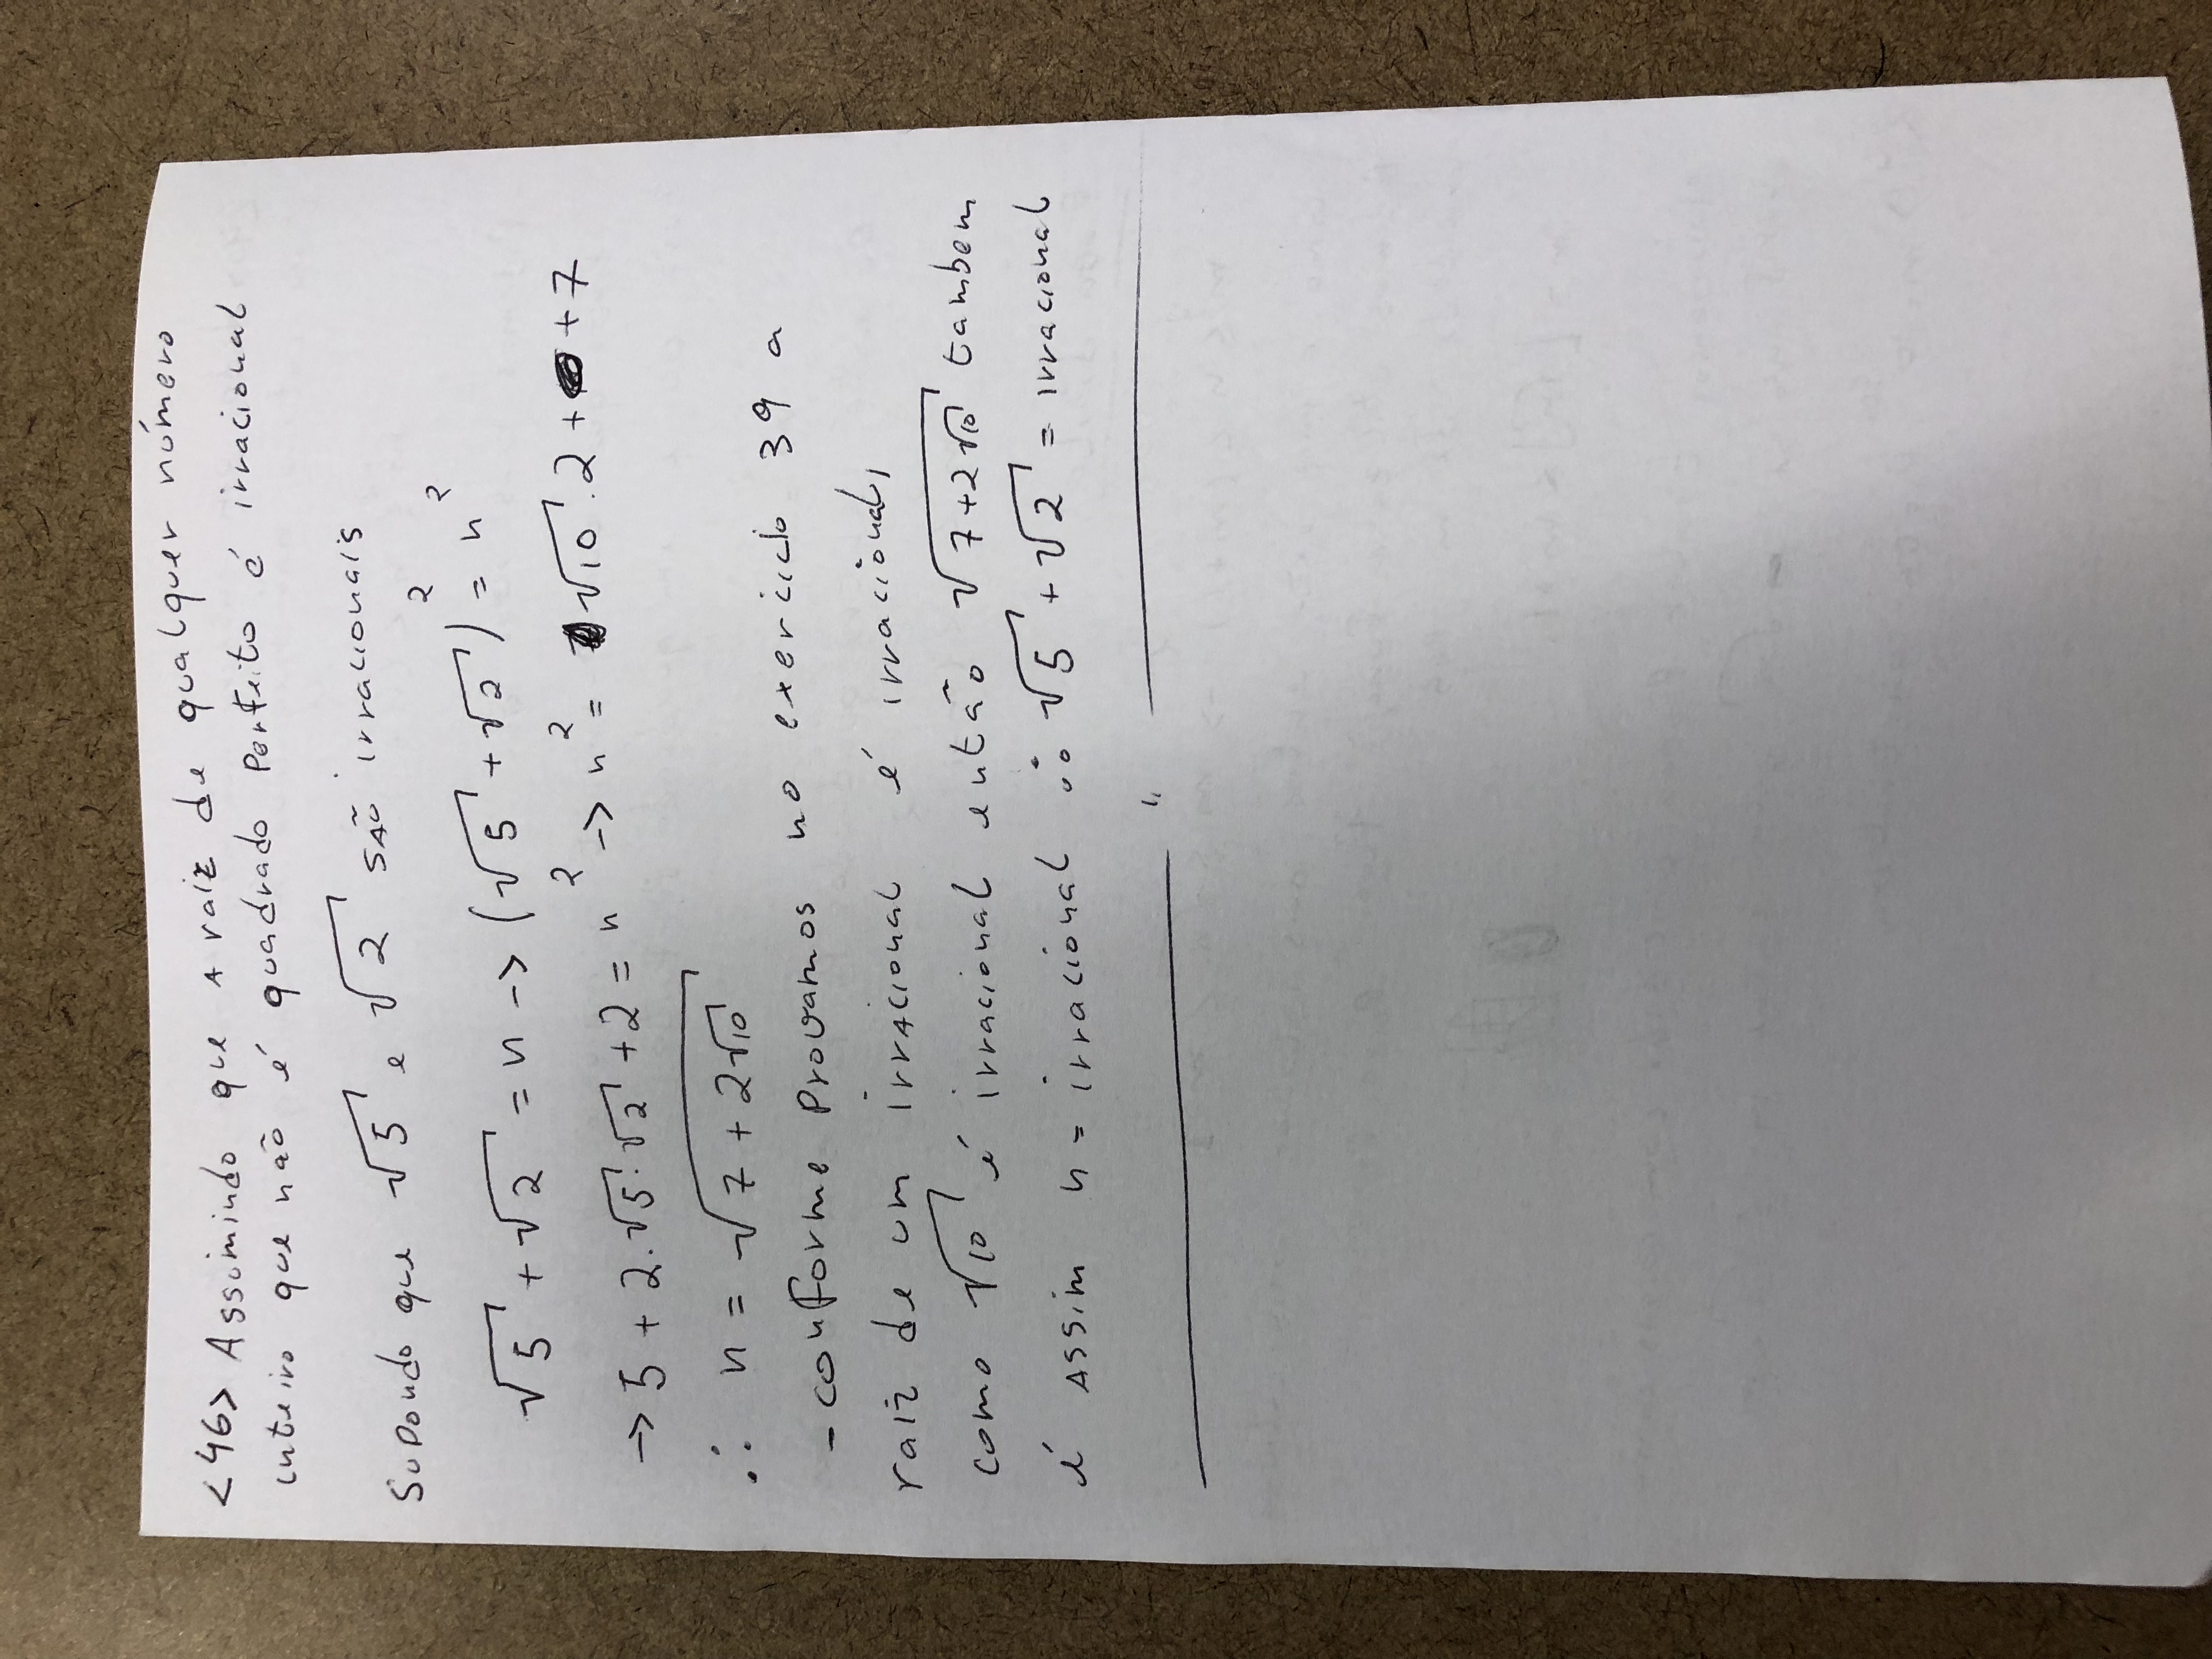 <46> Assumindo que a raiz de qualquer número
inteiro que não é quadrado perfeito é irracional
Supondo que √5 e √2 são irracionais
√5 + √2 = n -> (√5 + √2)² = n²
-> 5 + 2.√5.√2 + 2 = n² -> n² = √10.2 + + 7
∴ n = √(7 + 2√10)
- conforme provamos no exercicio 39 a
raiz de um irracional é irracional,
como √10 é irracional então √(7+2√10) tambem
é assim n = irracional ∴ √5 + √2 = irracional